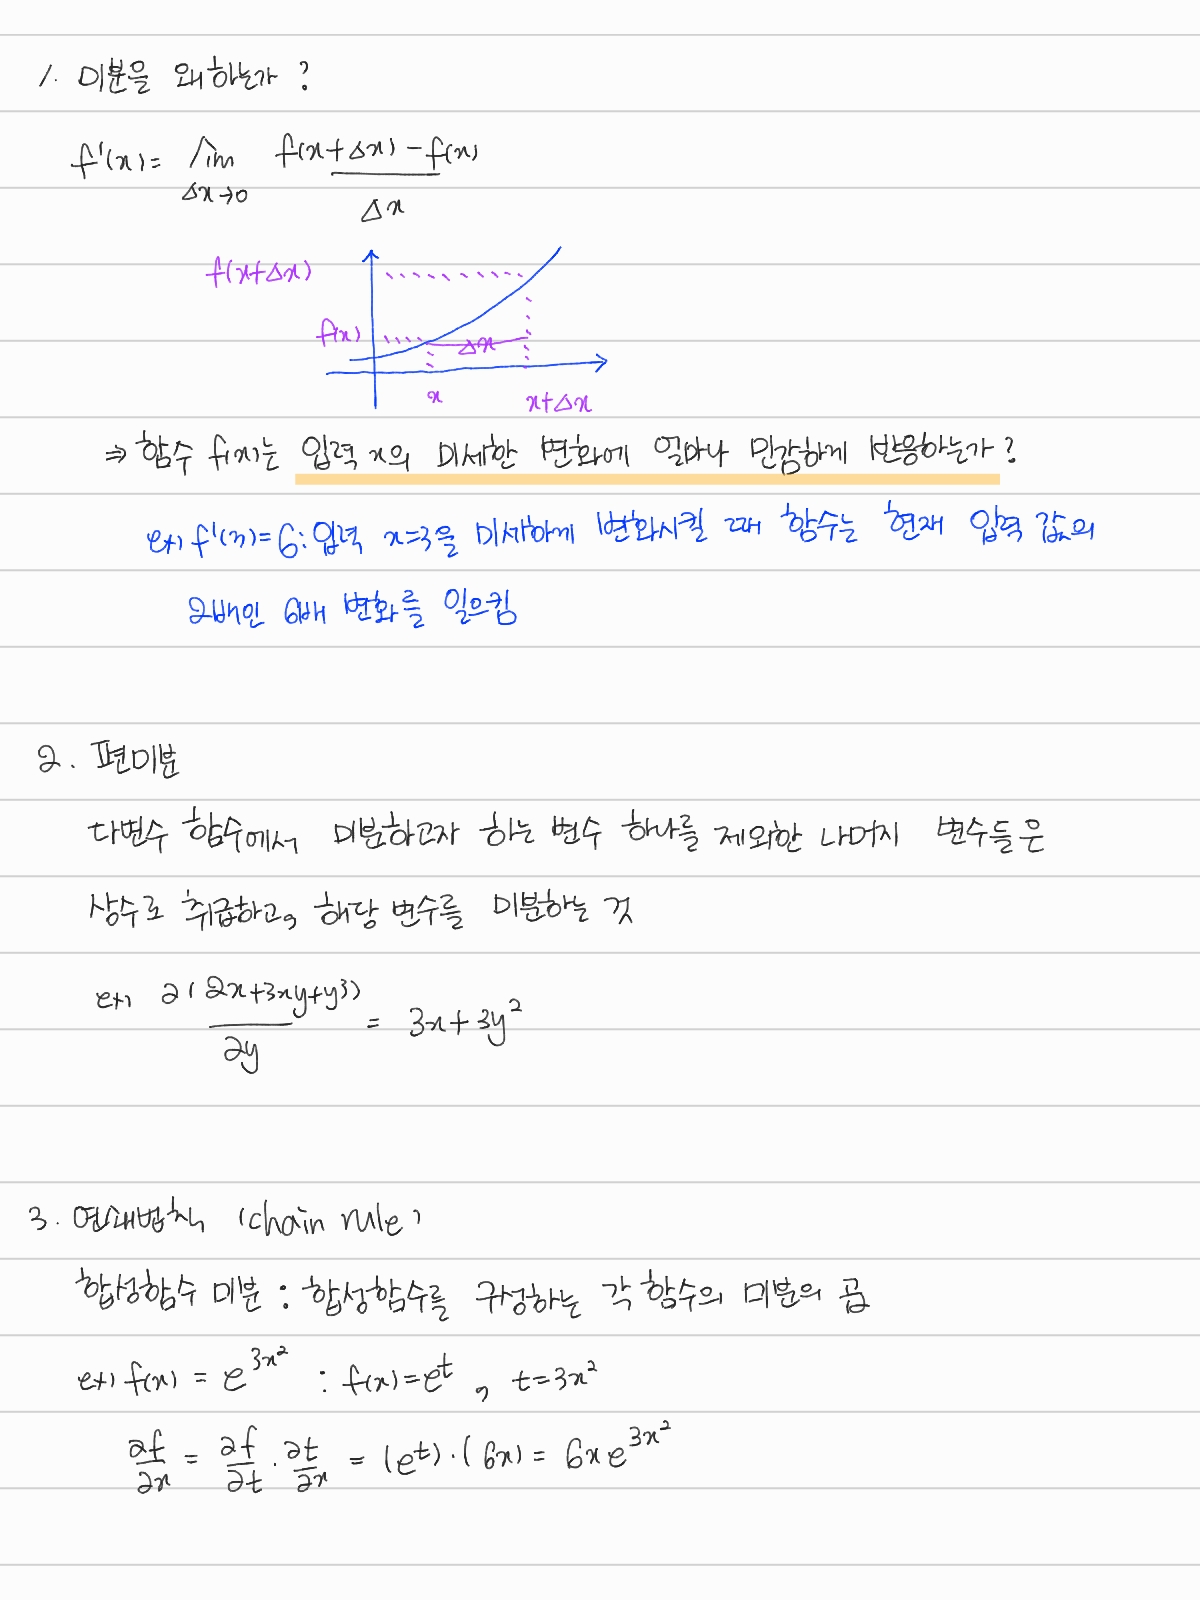 1. 미분을 왜하는가?
f'(x) = lim Δx→0 f(x+Δx) - f(x) / Δx
f(x+Δx)
f(x)
Δx
x
x+Δx
⇒ 함수 f(x)는 입력 x의 미세한 변화에 얼마나 민감하게 반응하는가?
ex) f'(3)=6 : 입력 x=3을 미세하게 변화시킬 때 함수는 현재 입력 값의
2배인 6배 변화를 일으킴
2. 편미분
다변수 함수에서 미분하고자 하는 변수 하나를 제외한 나머지 변수들은
상수로 취급하고, 해당 변수를 미분하는 것
ex) ∂(2x+3xy+y³) / ∂y = 3x+3y²
3. 연쇄법칙 (chain rule)
합성함수 미분 : 합성함수를 구성하는 각 함수의 미분의 곱
ex) f(x) = e^{3x²} : f(x)=e^t , t=3x²
∂f/∂x = ∂f/∂t · ∂t/∂x = (e^t)·(6x) = 6xe^{3x²}